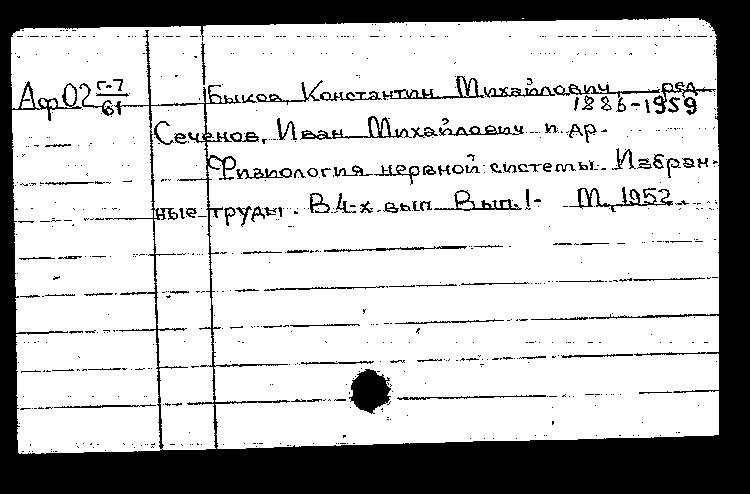 Аф02 Г-7/61 Быков, Константин Михайлович, ред.
1886-1959
Сеченов, Иван Михайлович и др.
Физиология нервной системы. Избран-
ные труды. В 4-х вып. Вып. 1- М., 1952.